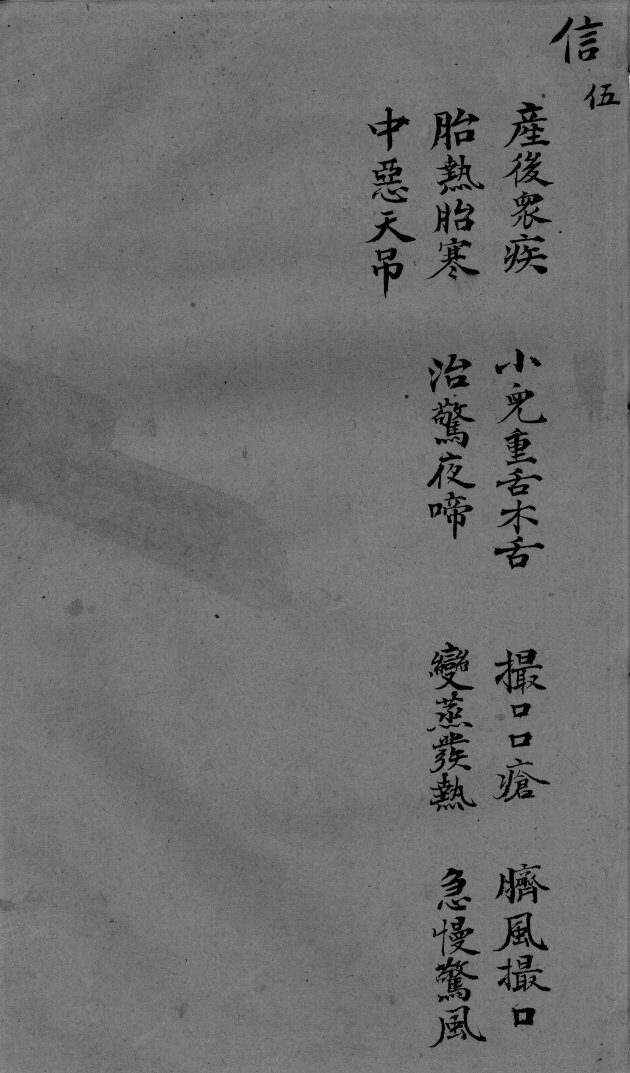 信 伍
産後衆疾 小兒重舌木舌 撮口口瘡 臍風撮口
胎熱胎寒 治驚夜啼 變蒸發熱 急慢驚風
中惡天吊